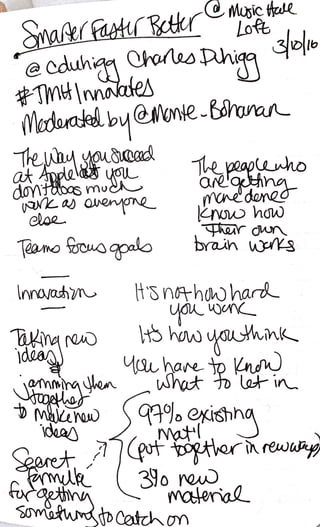 Smarter Faster Better @ Music Hall
Loft
3/10/16
@cduhigg Charles Duhigg
#TMHInnovates
Moderated by @Monte_Bohanan
The way you succeed
at Apple is you
don't do as much
work as everyone
else
Teams focus goals
The people who
are getting
more done
know how
their own
brain works
Innovation
Taking new
ideas
jamming them
together
to make new
ideas
Secret
formula
for getting
something to catch on
It's not how hard
you work
It's how you think
You have to know
what to let in
97% existing
mat'l
(put together in new ways)
3% new
material